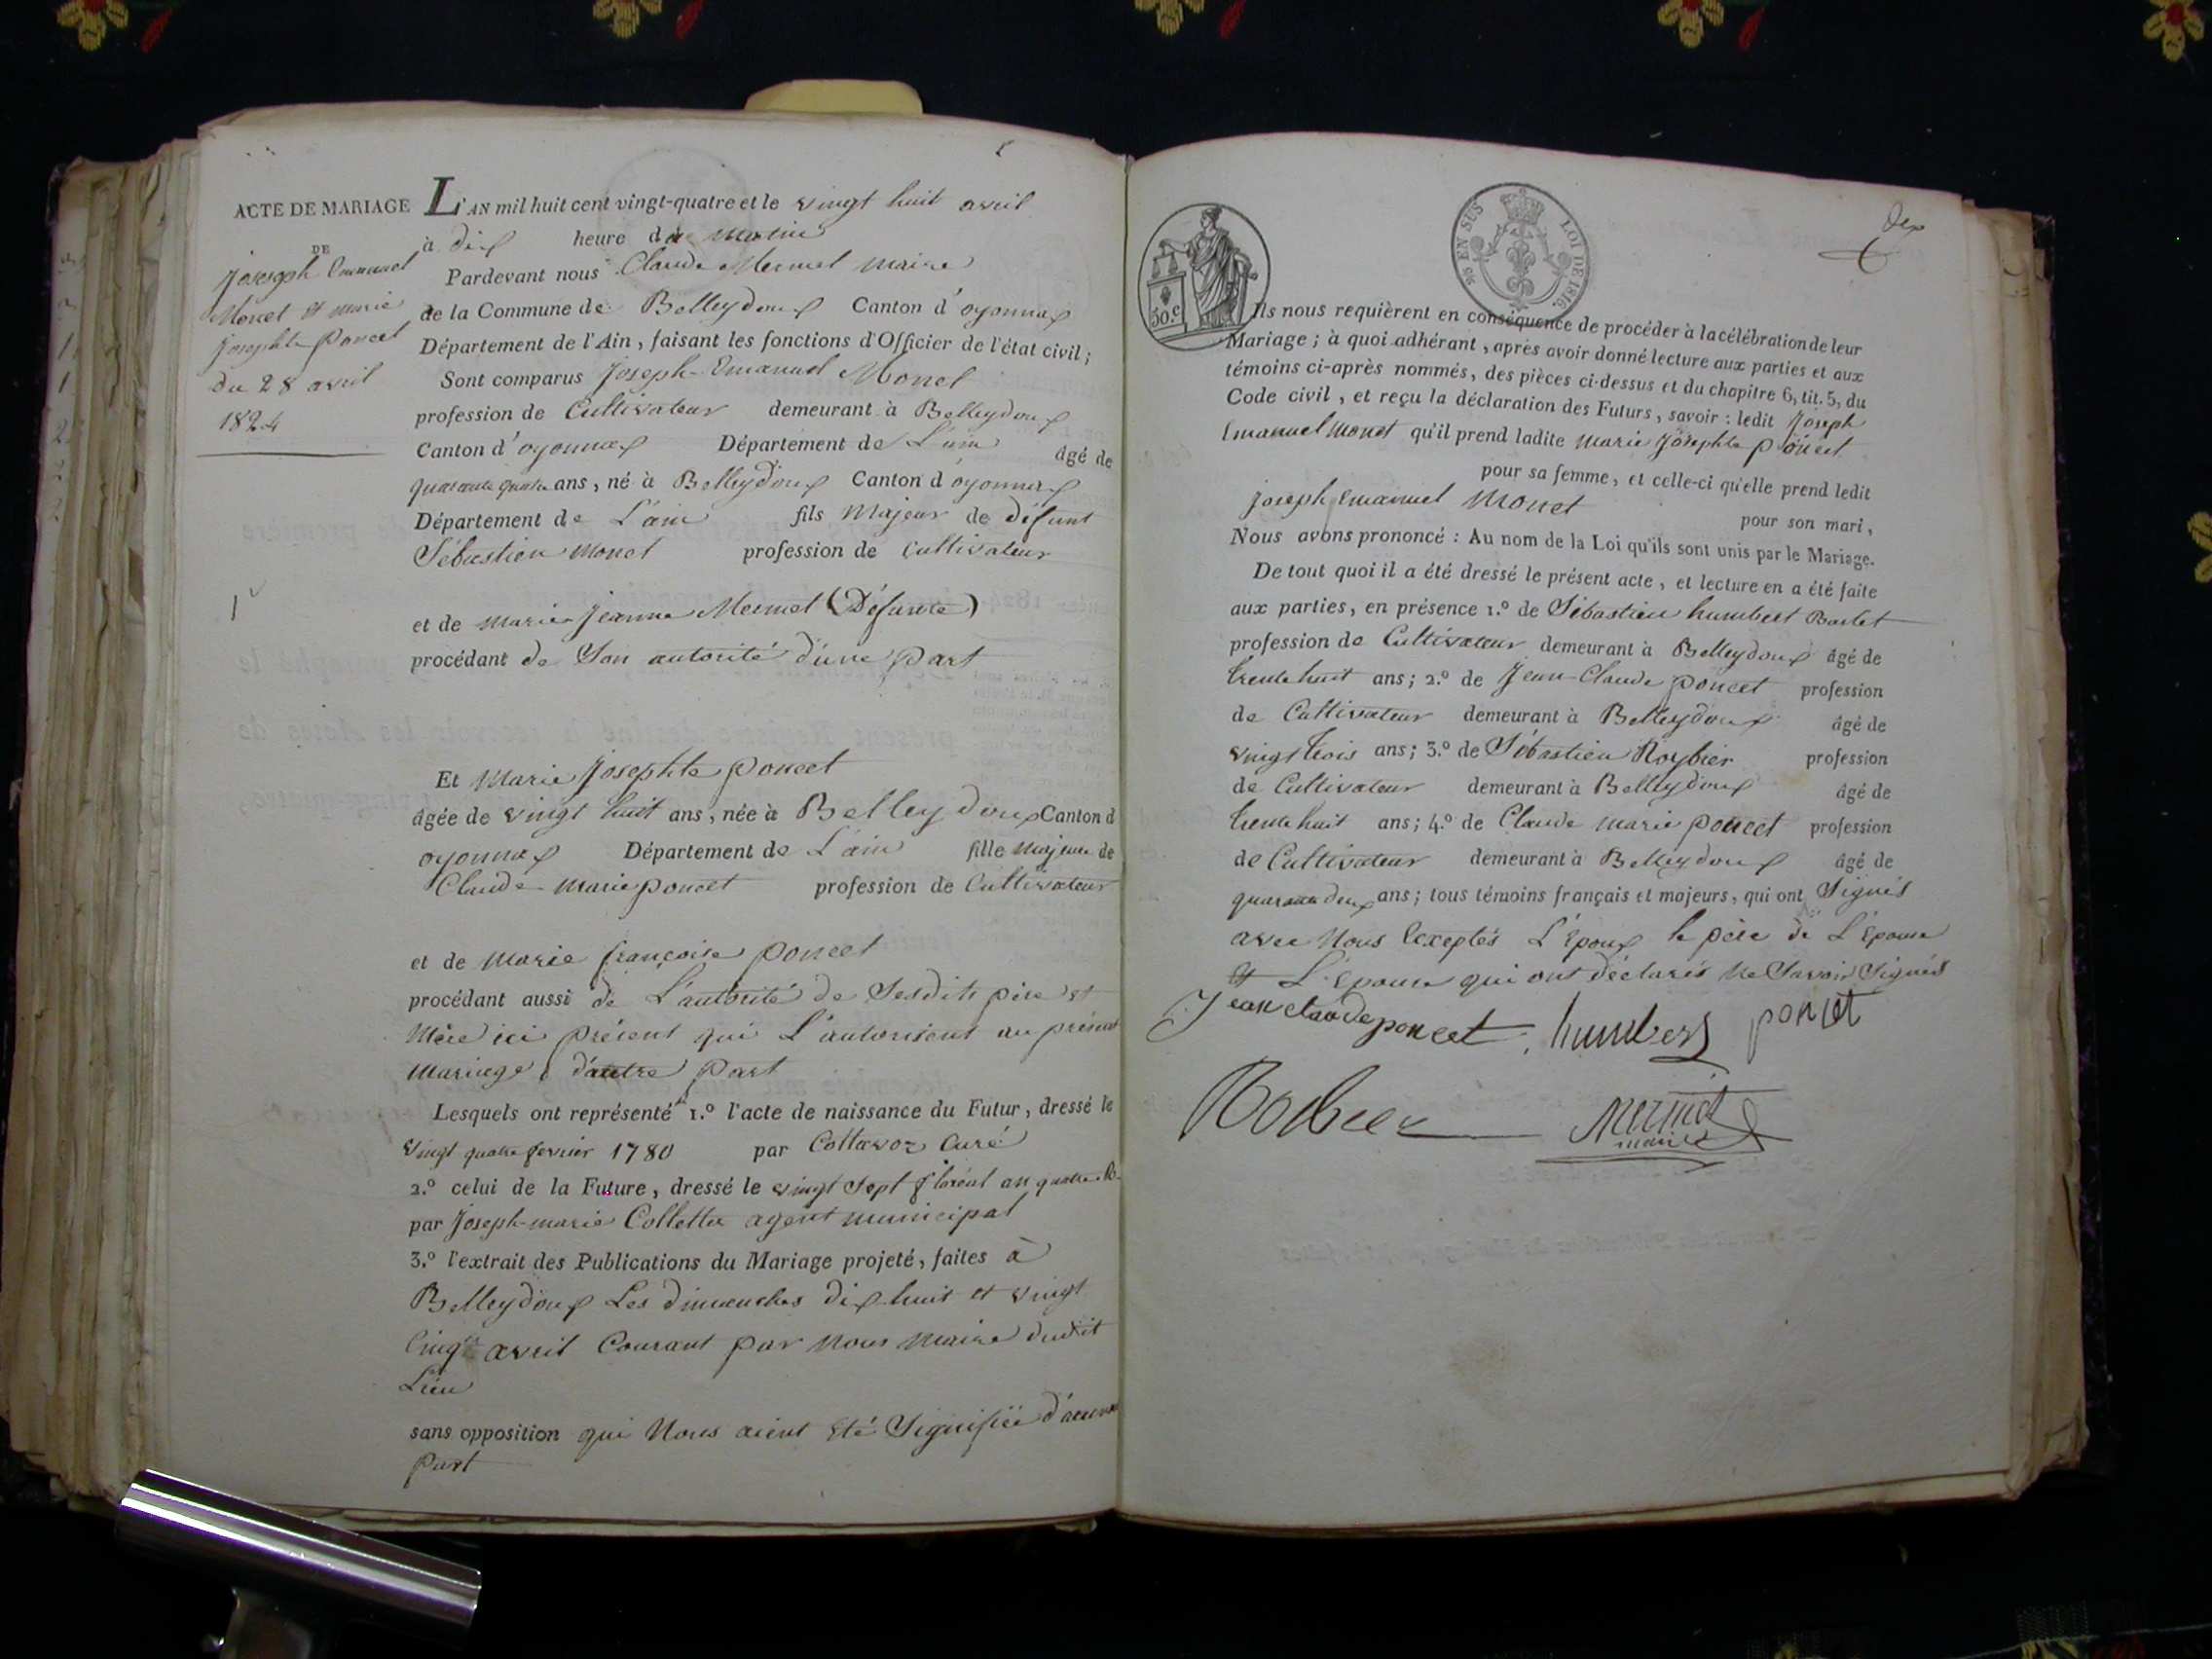 ACTE DE MARIAGE
DE
Joseph Emanuel
Monet et marie
Josephte Poncet
du 28 avril
1824
L'AN mil huit cent vingt-quatre et le vingt huit avril
à dix heure du matin
Pardevant nous Claude Mermet maire
de la Commune de Belleydoux Canton d'oyonnax
Département de l'Ain, faisant les fonctions d'Officier de l'état civil;
Sont comparus Joseph-Emanuel Monet
profession de Cultivateur demeurant à Belleydoux
Canton d'oyonnax Département de L'ain âgé de
quarante quatre ans, né à Belleydoux Canton d'oyonnax
Département de L'ain fils Majeur de défunt
Sébastien Monet profession de Cultivateur
1
et de marie Jeanne Mermet (Défunte)
procédant de Son autorité d'une part
Et Marie Josephte poncet
âgée de vingt huit ans, née à Belleydoux Canton d
oyonnax Département de L'ain fille majeure de
Claude marie poncet profession de Cultivateur
et de Marie françoise poncet
procédant aussi de L'autorité de Sesdits père et
Mère ici présent qui L'autorisent au présent
Mariage d'autre part
Lesquels ont représenté 1.º l'acte de naissance du Futur, dressé le
vingt quatre fevrier 1780 par Collavoz Curé
2.º celui de la Future, dressé le vingt Sept floréal an quatre R.
par Joseph-marie Colletta agent municipal
3.º l'extrait des Publications du Mariage projeté, faites à
Belleydoux Les dimanches dix huit et vingt
Cinq avril Courant par Nous Maire dudit
Lieu
sans opposition qui Nous aient Eté Signifiée d'aucune
Part
50.c
50 EN SUS LOI DE 1816.
Ils nous requièrent en conséquence de procéder à la célébration de leur
Mariage; à quoi adhérant, après avoir donné lecture aux parties et aux
témoins ci-après nommés, des pièces ci-dessus et du chapitre 6, tit. 5, du
Code civil, et reçu la déclaration des Futurs, savoir: ledit Joseph
Emanuel Monet qu'il prend ladite Marie Josephte poncet
pour sa femme, et celle-ci qu'elle prend ledit
Joseph Emanuel Monet pour son mari,
Nous avons prononcé: Au nom de la Loi qu'ils sont unis par le Mariage.
De tout quoi il a été dressé le présent acte, et lecture en a été faite
aux parties, en présence 1.º de Sébastien humbert Barlet
profession de Cultivateur demeurant à Belleydoux âgé de
trente huit ans; 2.º de Jean-Claude poncet profession
de Cultivateur demeurant à Belleydoux âgé de
vingt trois ans; 3.º de Sébastien Roybier profession
de Cultivateur demeurant à Belleydoux âgé de
trente huit ans; 4.º de Claude marie poncet profession
de Cultivateur demeurant à Belleydoux âgé de
quarante deux ans; tous témoins français et majeurs, qui ont Signés
avec Nous Exeptés L'Epoux le père de L'Epouse
et L'Epouse qui ont déclarés ne Savoir Signés
Jean claude poncet humbert poncet
Mermet
maire